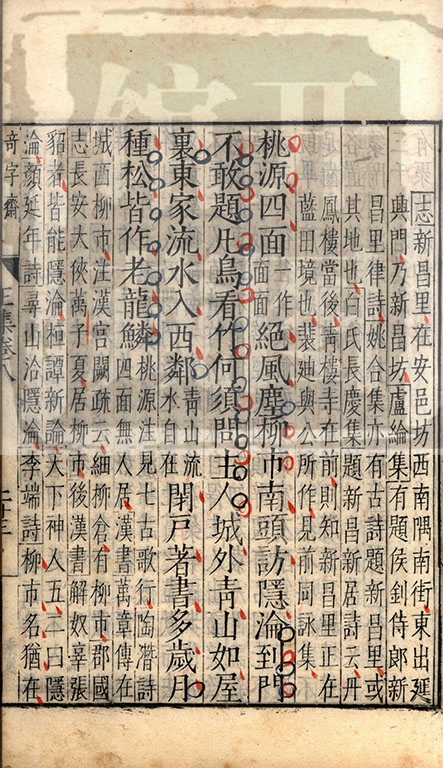 志新昌里在安邑坊西南隅南街東出延
興門乃新昌坊盧綸集有題侯釗侍郎新
昌里律詩姚合集亦有古詩題新昌里或
其地也白氏長慶集題新昌新居詩云丹
鳳樓當後靑樓寺在前則知新昌里正在
藍田境也裴迪與公所作見前同詠集不
桃源四面一作面面絕風塵柳市南頭訪隱淪到門
不敢題凡鳥看竹何須問主人城外靑山如屋
裏東家流水入西鄰靑山流水自在閉戶著書多歲月
種松皆作老龍鱗桃源注見七古歌行陶潛詩四面無人居漢書萬章傳在
城西柳市注漢宮闕疏云細柳倉有柳市郡國
志長安大俠萬子夏居柳市後漢書解奴辜張
貂者皆能隱淪桓譚新論天下神人五二曰隱
淪顏延年詩尋山洽隱淪李端詩柳市名猶在
奇字齋